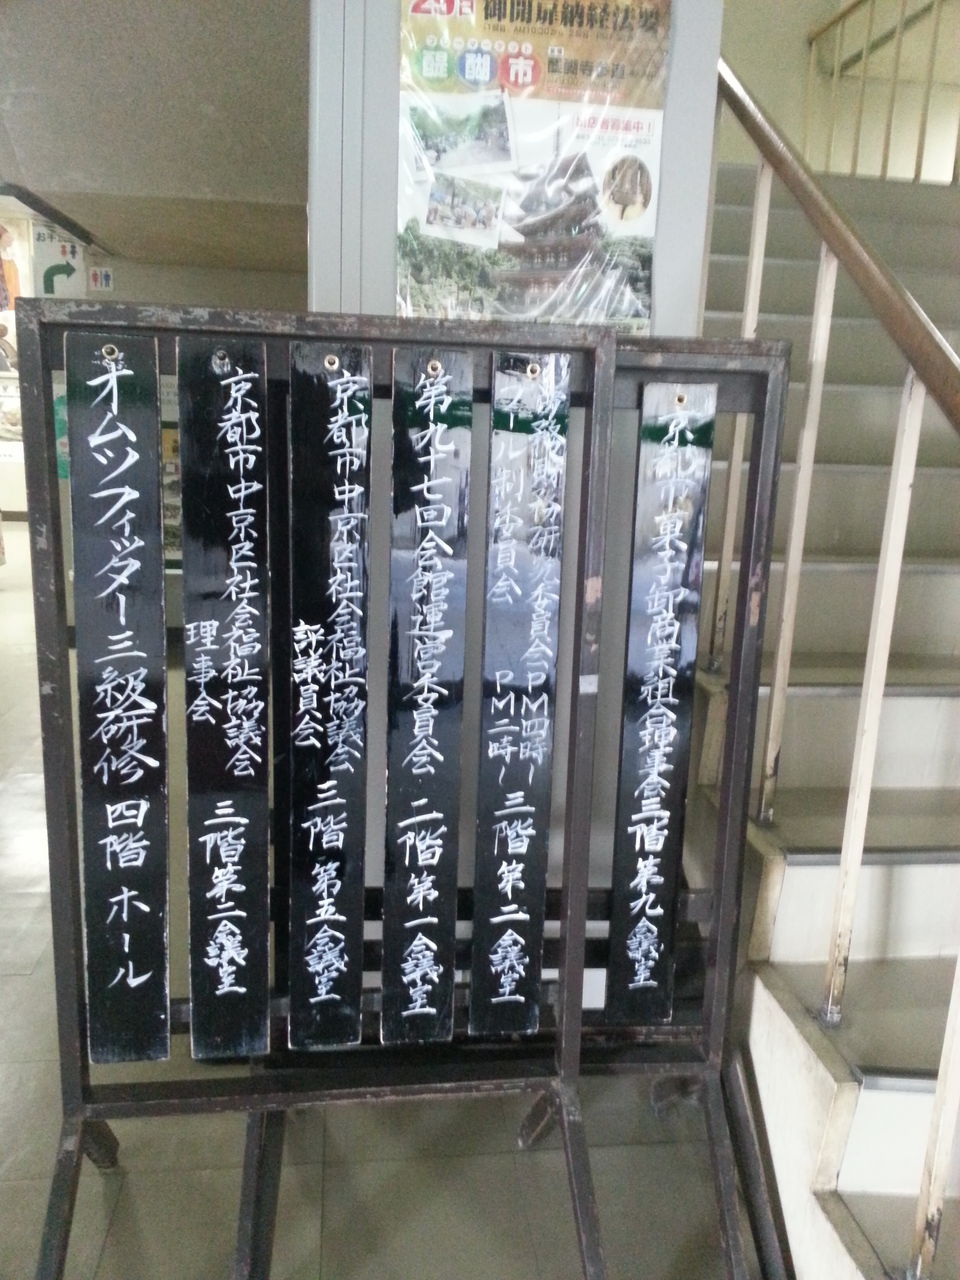 御開扉納経法要
フリーマーケット
醍醐市
醍醐寺参道
出店者募集中!
京都市菓子卸商業組合理事会三階 第九会議室
労務財務研究委員会PM四時〜
ルール制委員会 PM二時〜
三階 第二会議室
第九十七回会館運営委員会 二階 第一会議室
京都市中京区社会福祉協議会
評議員会
三階 第五会議室
京都市中京区社会福祉協議会
理事会
三階 第二会議室
オムツフィッター三級研修 四階 ホール